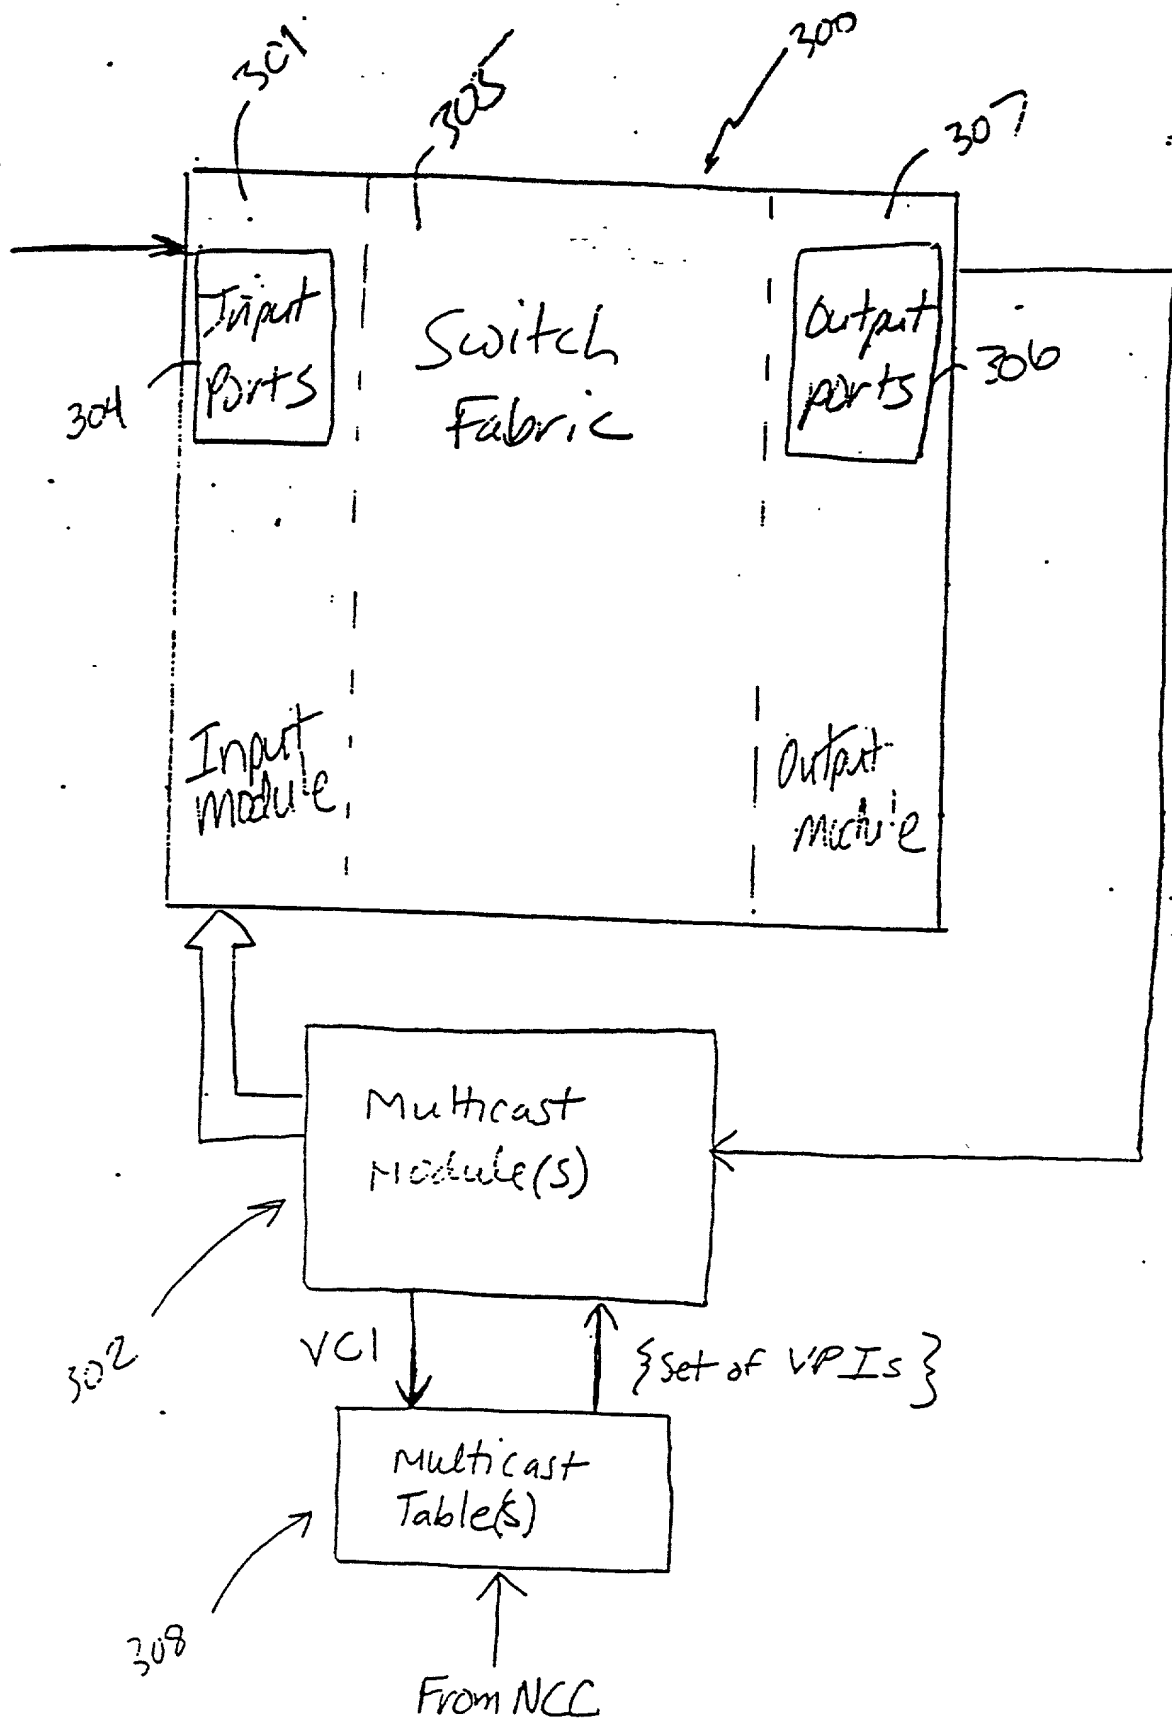 301
305
300
307
Input
Ports
304
Switch
Fabric
Output
ports
306
Input
Module
Output
Module
Multicast
Module(s)
302
VCI
{Set of VPIs}
Multicast
Table(s)
308
From NCC